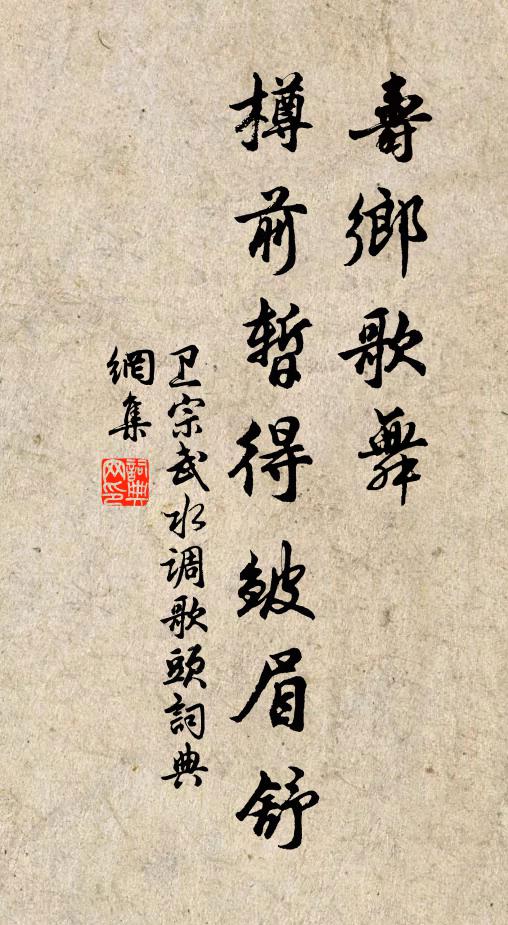 壽鄉歌舞
樽前暫得皴眉舒
卫宗武水调歌頭詞典
網集
詞典
网印